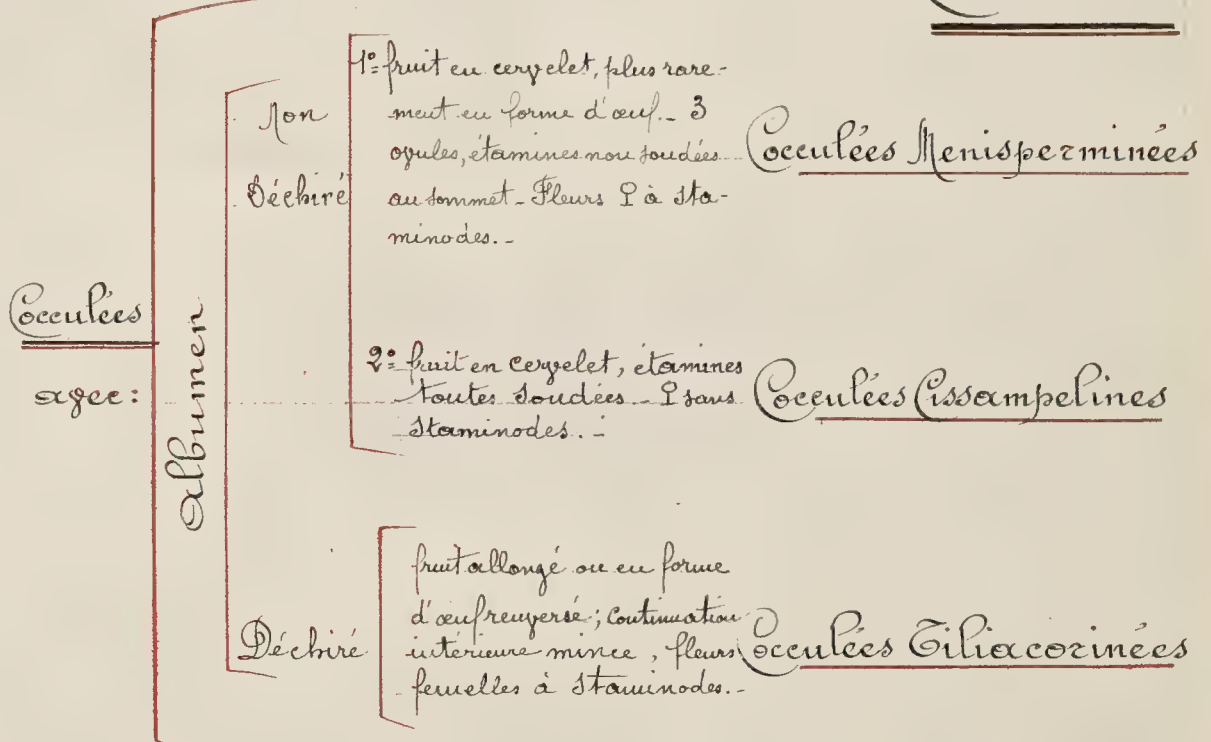 Cocculées
avec:
Albumen
Non
Déchiré
1º fruit en cervelet, plus rare-
ment en forme d'œuf._ 3
ovules, étamines non soudées
au sommet_ Fleurs ♀ à sta-
minodes._
Cocculées Menisperminées
2º fruit en cervelet, étamines
toutes soudées_ ♀ sans
staminodes._
Cocculées Cissampelines
Déchiré
fruit allongé ou en forme
d'œuf renversé; continuation
intérieure mince, fleurs
femelles à staminodes._
Cocculées Tiliacorinées